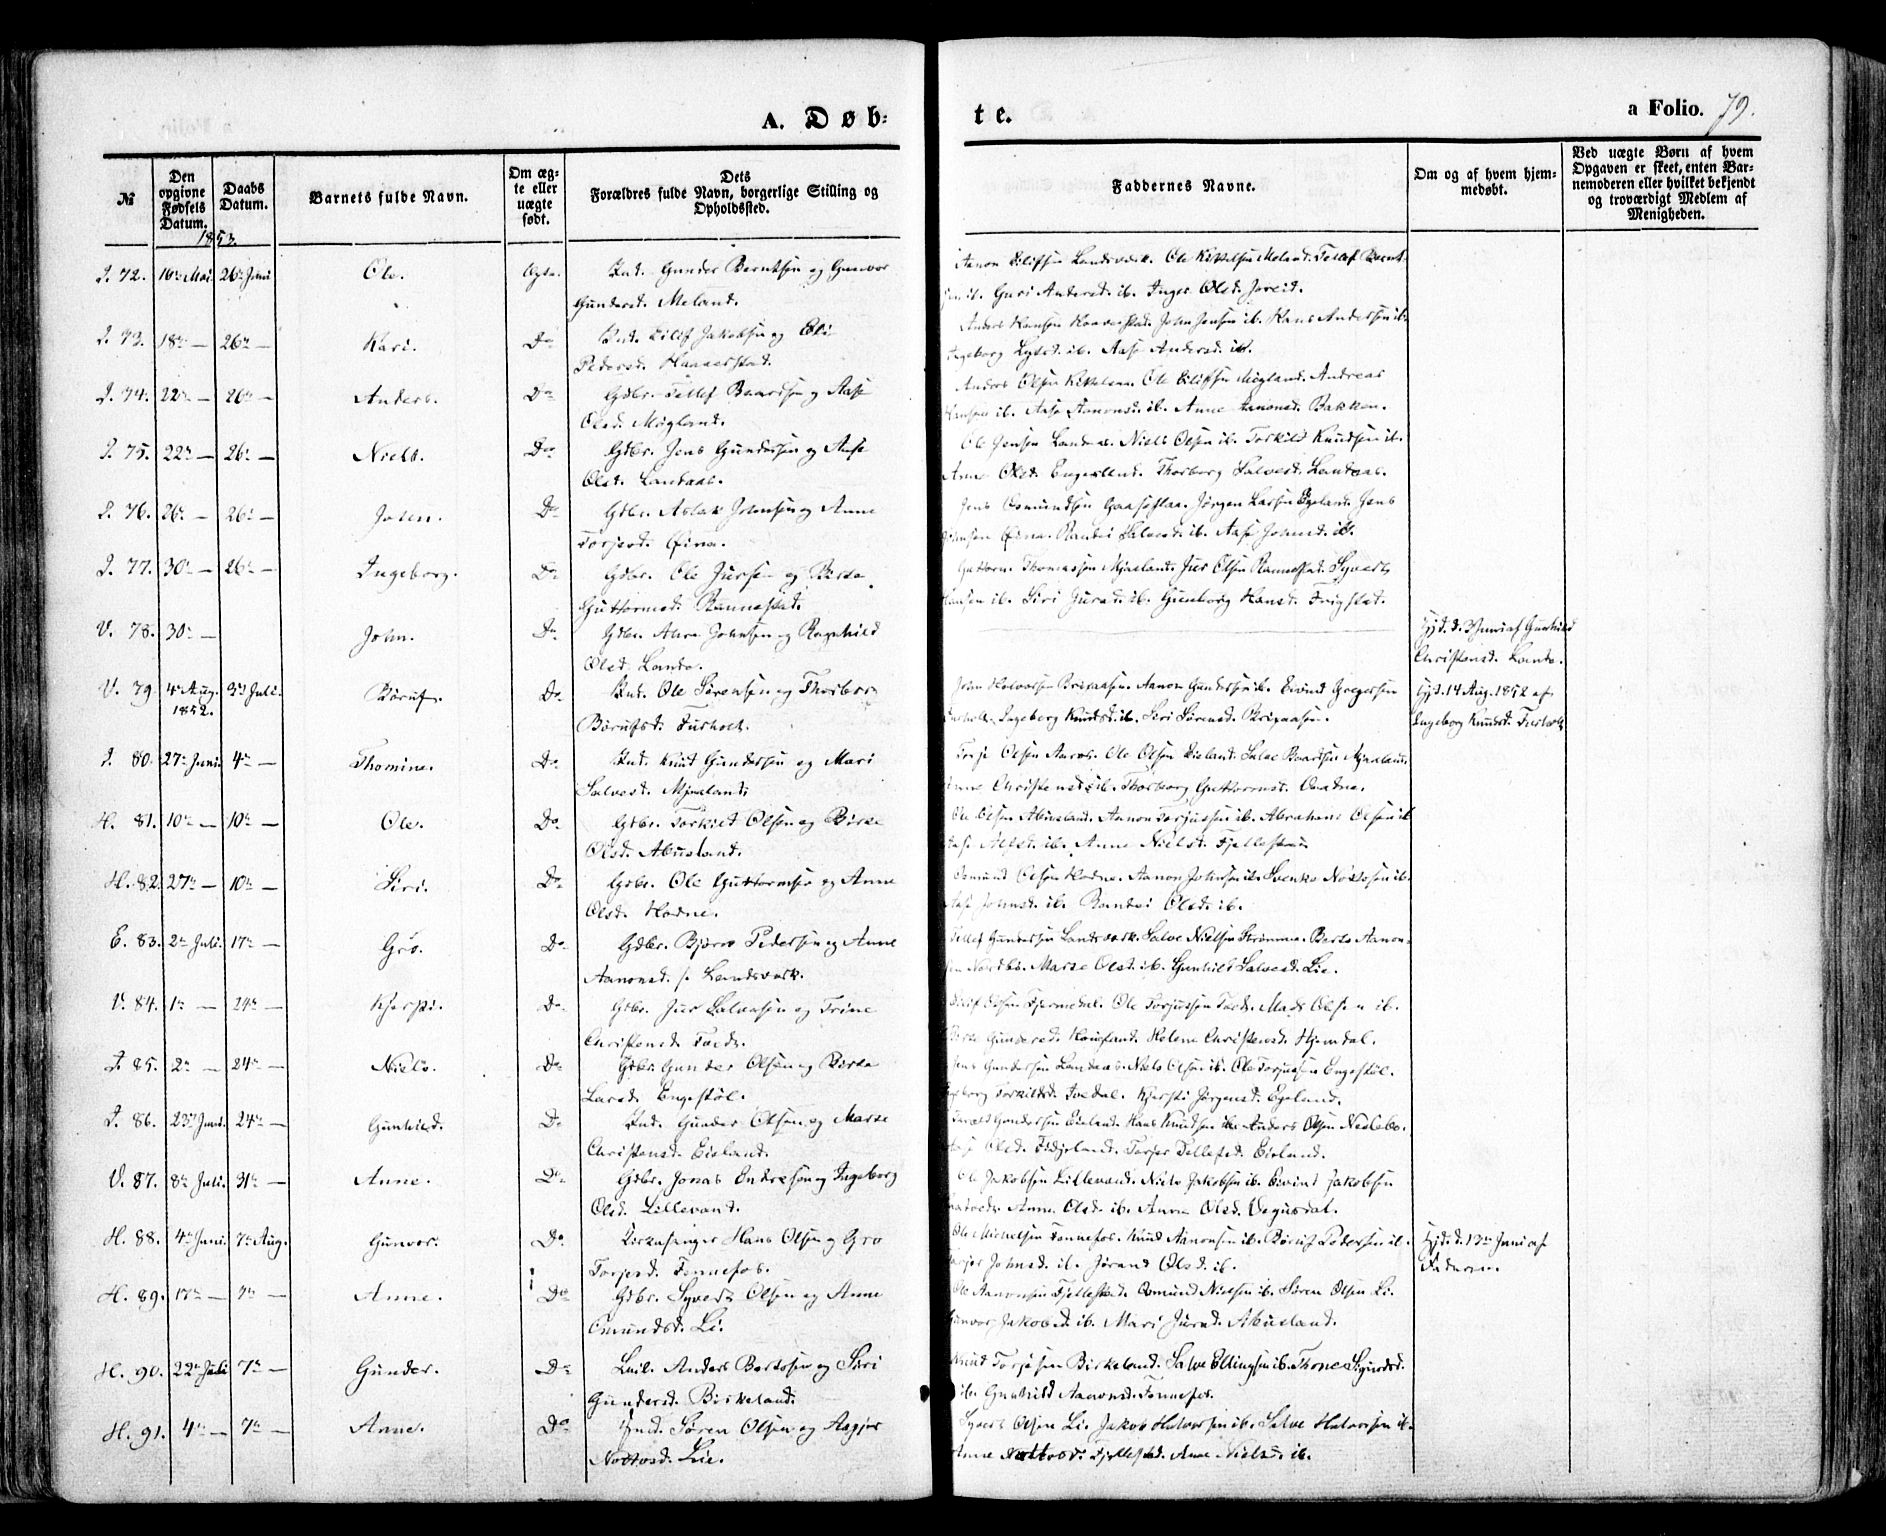 A. Døb-
te.
a Folio. 79.
№
Den opgivne Fødsels Datum.
Daabs Datum.
Barnets fulde Navn.
Om ægte eller uægte født.
Dets Forældres fulde Navn, borgerlige Stilling og Opholdssted.
Faddernes Navne.
Om og af hvem hjemmedøbt.
Ved uægte Børn af hvem Opgaven er skeet, enten Barnemoderen eller hvilket bekjendt og troværdigt Medlem af Menigheden.
1853.
I. 72. 16de Mai. 26de Juni Ole. Ægte. Ind. Gunder Berntsen og Gunvor
Gundersd. Meland.
Aanon Eilifsen Landsværk. Ole Kittelsen Meland. Tellef Bernt-
sen ib. Guri Andersd. ib. Inger Olsd. Joreid.
I. 73. 18de — 26de — Kari. Do Ind. Eilif Jakobsen og Eli
Pedersd. Haaverstad.
Anders Hansen Haaverstad. John Jensen ib. Hans Andersen ib.
Ingeborg ib. Aase Andersd. ib.
I. 74. 22de — 26de — Anders. Do Gdbr. Tellef Baardsen og Aase
Olsd. Møgland.
Anders Olsen Ole Eilifsen Møgland. Andreas
Hansen ib. Aase Aanonsd. ib. Anne Aanonsd. Bakken.
I. 75. 22de — 26de — Niels. Do Gdbr. Jens Gundersen og Aase
Olsd. Landaas.
Ole Jensen Landaas. Niels Olsen ib. Torkild Knudsen ib.
Anne Olsd. Thorborg Salvesd. Landaas.
I. 76. 26de — 26de — John. Do Gdbr. Aslak Johnsen og Anne
Torjesd. Øina.
Jens Osmundsen Gaaseflaa. Jørgen Larsen Egeland. Jens
Johnsen Øina. Randei Salvesd. ib. Aase Johnsd. ib.
I. 77. 30de — 26de — Ingeborg. Do Gdbr. Ole Jursen og Berte
Guttormsd. Rannestad.
Guttorm Thomassen Mjaaland. Jur Olsen Rannestad. Syvert
Hansen ib. Siri Jursd. ib. Gunborg Hansd. Frigstad.
V. 78. 30de — John. Do Gdbr. Johnsen og Ragnhild
Olsd. Lande.
Hjd. d. Juni af Gunhild
Christensd. Lande.
V. 79. 4de Aug. 1852. 3die Juli. Børuf. Do Ind. Ole Sørensen og Thorbor
Børufsd. Furholt.
John Halvorsen Brixaasen. Aanon Gundersen ib. Eivind Gregersen
Furholt. Ingeborg Knudsd. ib. Seri Sørensd. Brixaasen.
Hjd. 14 Aug. 1852 af
Ingeborg Knudsd. Furholt
I. 80. 27de Juni. 4de — Thomine. Do Ind. Knut Gundersen og Mari
Salvesd. Mjaaland.
Torje Olsen Aaros. Ole Olsen Eieland. Salve Baardsen Mjaaland.
Anne Christensd. ib. Thorborg Guttormsd.
H. 81. 10de — 10de — Ole. Do Gdbr. Torkild Olsen og Berte
Olsd. Abusland.
Ole Olsen Abusland. Aanon Torjussen ib. Abraham Olsen ib.
Aase Alfsd. ib. Anne Nielsd. Fjellestad.
H. 82. 27de — 10de — Siri. Do Gdbr. Ole Guttormsen og Anne
Olsd. Hodne.
Osmund Olsen Hodne. Aanon Johnsen ib. Svenke Nottosen ib.
Aase Johnsd. ib. Randei Olsd. ib.
E. 83. 2de Juli. 17de — Gro. Do Gdbr. Bjørn Pedersen og Anne
Aanonsd. Landsværk.
Tellef Gundersen Landsværk. Salve Nielsen Strømme. Berte Aanon-
Marte Olsd. ib. Gunhild Salvesd. Lie.
V. 84. 1te — 24de — Kjersti. Do Gdbr. Jur Salvesen og Trine
Christensd.
Eilif Olsen Fjermedal. Ole Torjussen Mads Olsen ib.
Berte Gundersd. Haugland. Helene Christensd. Hjemdal.
I. 85. 2de — 24de — Niels. Do Gdbr. Gunder Olsen og Berte
Larsd. Engestøl.
Jens Gundersen Landaas. Niels Olsen ib. Ole Torjussen Engestøl.
Ingeborg Torkildsd. Ivedal. Kjersti Jørgensd. Egeland.
I. 86. 23de Juni. 24de — Gunhild. Do Ind. Gunder Olsen og Marte
Christensd. Eieland.
Gundersen Eieland. Hans Knudsen ib. Anders Olsen Nedlebø.
Olsd. Torjer Tellefsd. Eieland.
V. 87. 8de Juli. 31te — Anne. Do Gdbr. Jonas Endresen og Ingeborg
Olsd. Lillevand.
Ole Jakobsen Lillevand. Niels Jakobsen ib. Eivind Jakobsen
Anne Olsd. ib. Anne Olsd. Vegusdal.
H. 88. 4de Juni. 7de Aug. Gunvor. Do Kirkesanger Hans Olsen og Gro
Torjesd. Fennefos.
Ole Michelsen Fennefos. Knud Aanonsen ib. Børuf Pedersen ib.
Torjer Johnsd. ib. Jørand Olsd. ib.
Hjd. d. 13de Juni af
Faderen.
H. 89. 17de — 7de — Anne. Do Gdbr. Syvert Olsen og Anne
Omundsd. Li.
Ole Aanonsen Fjellestad. Osmund Nielsen ib. Søren Olsen Li.
Gunvor Jakobsd. ib. Mari Jursd. Abusland.
H. 90. 22de Juli 7de — Gunder. Do Leil. Anders Bertssen og Siri
Gundersd. Birkeland.
Knud Torjesen Birkeland. Salve Ellingsen ib. Thone Sigurdsd.
ib. Gunhild Aanonsd. Fennefos.
H. 91. 4de — 7de — Anne. Do Ind. Søren Olsen og Asgjer
Nottosd. Lie.
Syvert Olsen Li. Jakob Halvorsen ib. Salve Halvorsen ib.
Anne Nottosd. Fjellestad. Anne Nielsd. ib.